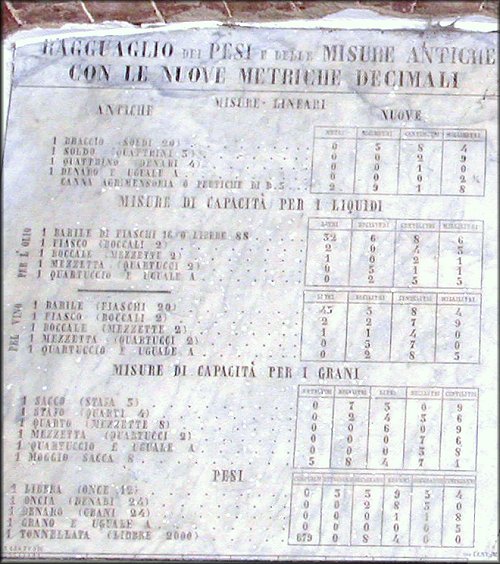 RAGGUAGLIO DEI PESI E DELLE MISURE ANTICHE
CON LE NUOVE METRICHE DECIMALI
MISURE LINEARI
ANTICHE
NUOVE
METRI DECIMETRI CENTIMETRI MILLIMETRI
1 BRACCIO (SOLDI 20) 0 5 8 4
1 SOLDO (QUATTRINI 3) 0 0 2 9
1 QUATTRINO (DENARI 4) 0 0 1 0
1 DENARO E UGUALE A 0 0 0 2
CANNA AGRIMENSORIA O PERTICHE DI B.5 2 9 1 8
MISURE DI CAPACITÀ PER I LIQUIDI
PER L'OLIO
LITRI DECILITRI CENTILITRI MILLILITRI
1 BARILE DI FIASCHI 16 O LIBBRE 88 6 8 6
1 FIASCO (BOCCALI 2) 2 0 4 3
1 BOCCALE (MEZZETTE 2) 1 0 2 1
1 MEZZETTA (QUARTUCCI 2) 0 5 1 1
1 QUARTUCCIO E UGUALE A 0 2 5 5
PEL VINO
LITRI DECILITRI CENTILITRI MILLILITRI
1 BARILE (FIASCHI 20) 45 5 8 4
1 FIASCO (BOCCALI 2) 2 2 7 9
1 BOCCALE (MEZZETTE 2) 1 1 4 0
1 MEZZETTA (QUARTUCCI 2) 0 5 7 0
1 QUARTUCCIO E UGUALE A 0 2 8 5
MISURE DI CAPACITÀ PER I GRANI
LITRI DECILITRI CENTILITRI
1 SACCO (STAJA 3) 0 7 3 0 9
1 STAJO (QUARTI 4) 0 2 4 3 6
1 QUARTO (MEZZETTE 8) 0 0 6 0 9
1 MEZZETTA (QUARTUCCI 2) 0 0 0 7 6
1 QUARTUCCIO E UGUALE A 0 0 0 3 8
1 MOGGIO SACCA 8 5 8 4 7 1
PESI
1 LIBBRA (ONCE 12) 0 3 3 9 5 4
1 ONCIA (DENARI 24) 0 0 2 8 3 0
1 DENARO (GRANI 24) 0 0 0 1 1 8
1 GRANO E UGUALE A 0 0 0 0 0 5
1 TONNELLATA (LIBBRE 2000) 679 0 8 4 0 0